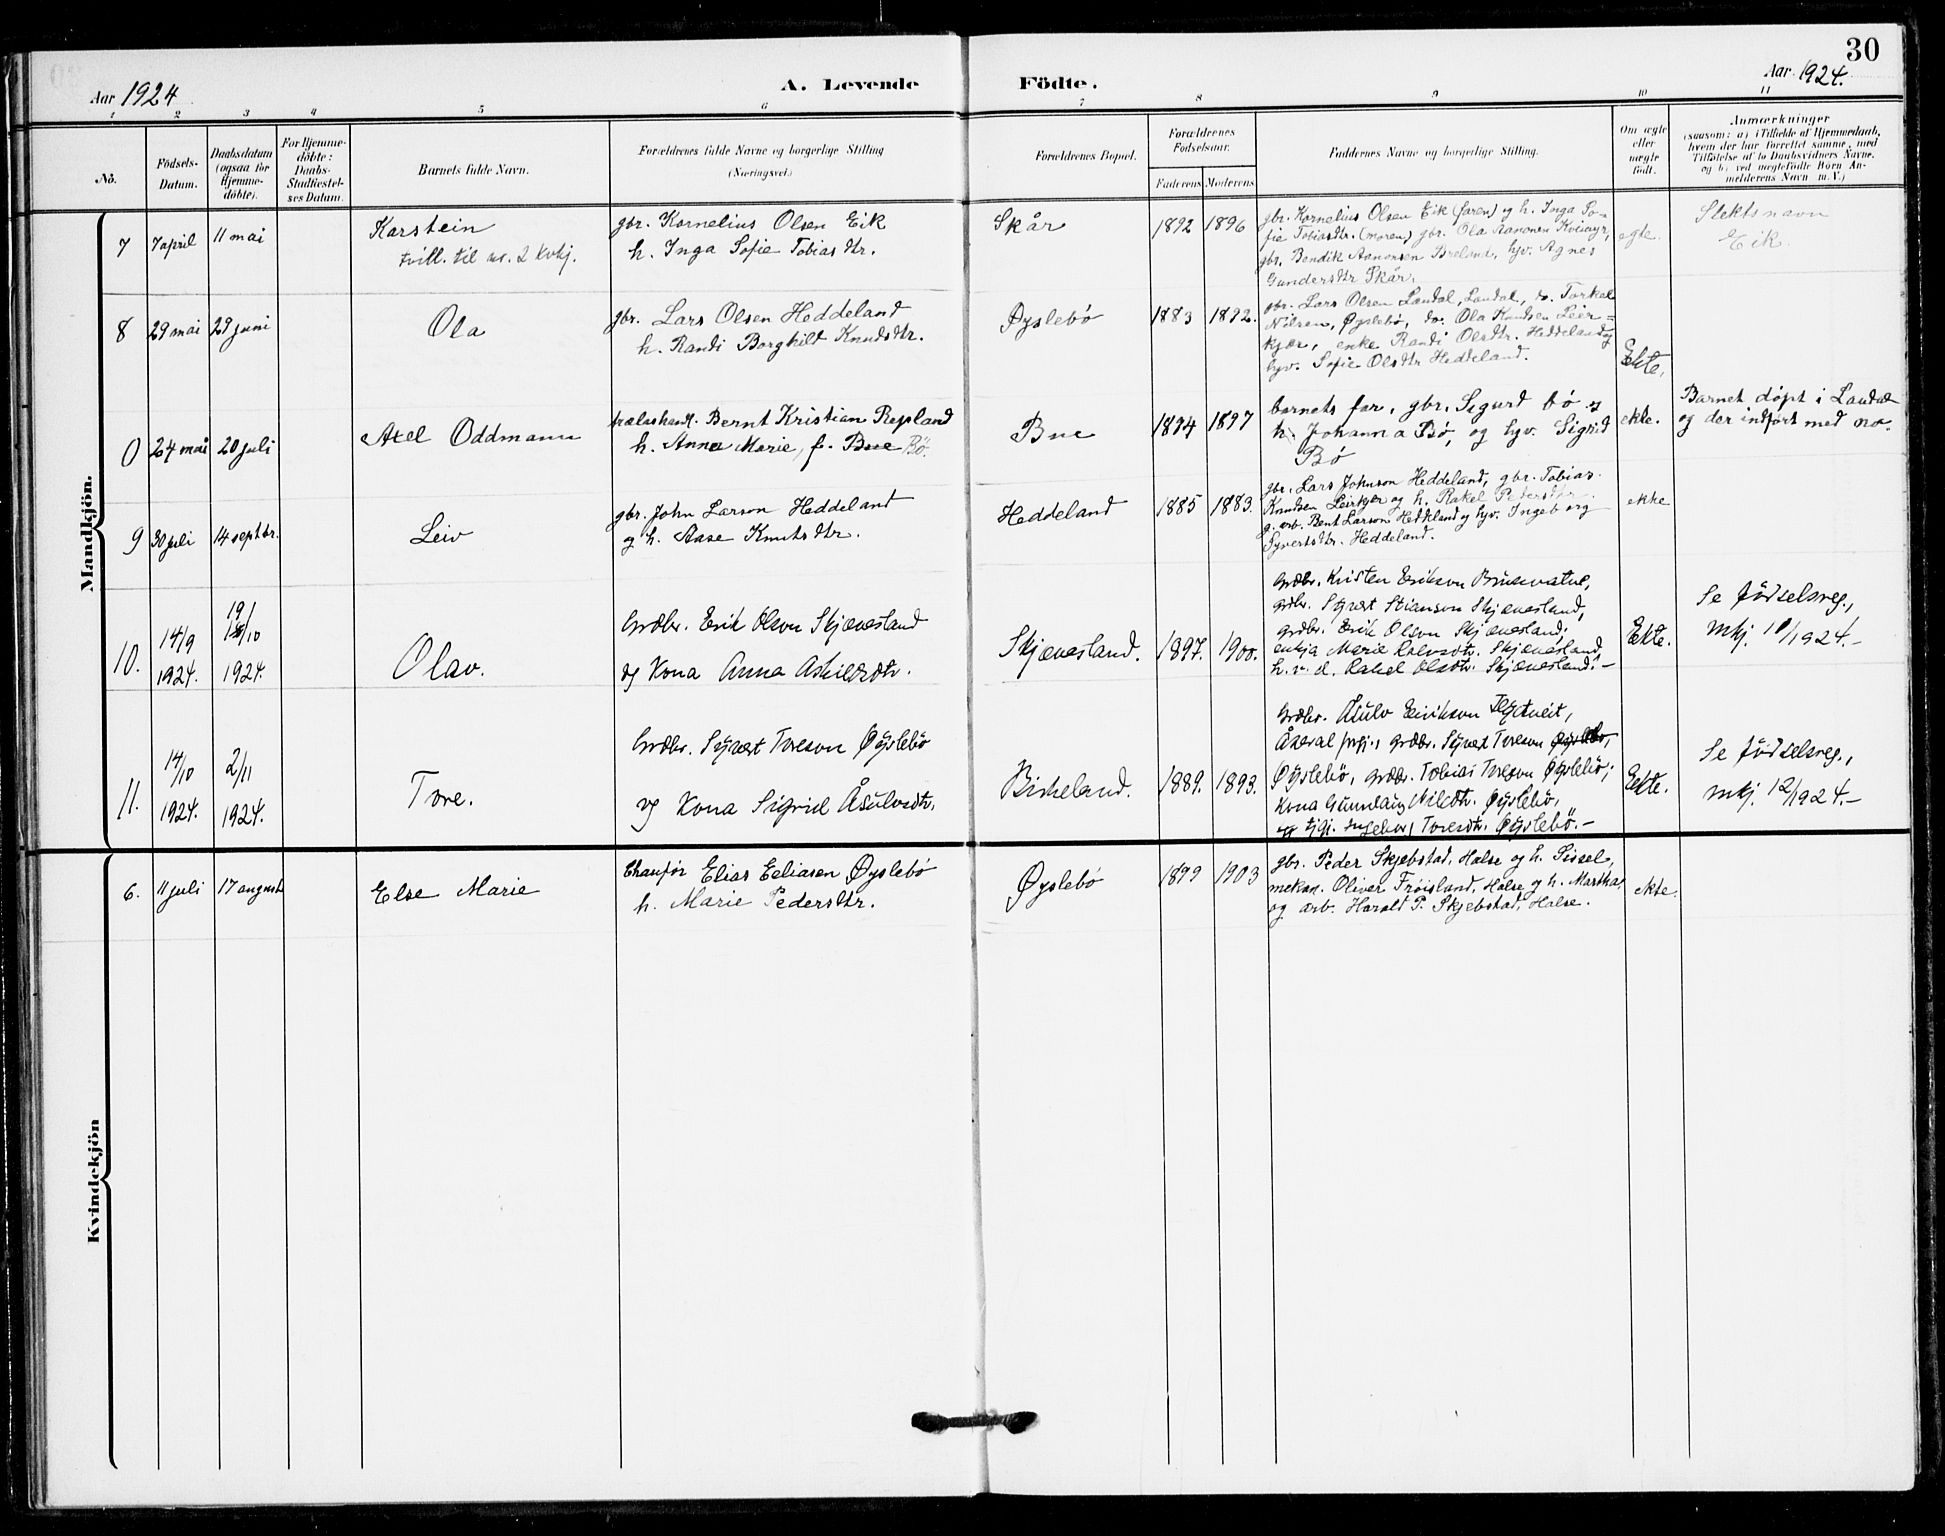 30
Aar 1924
A. Levende
Födte.
Aar 1924.
1 2 3 4 5 6 7 8 9 10 11
No.
Födsels-
Datum.
Daabsdatum
(ogsaa for
Hjemme-
döbte).
For Hjemme-
döbte:
Daabs-
Stadfæstel-
ses Datum.
Barnets fulde Navn.
Forældrenes fulde Navne og borgerlige Stilling
(Næringsvei.)
Forældrenes Bopæl.
Forældrenes
Födselsaar.
Faderens
Moderens
Faddernes Navne og borgerlige Stilling.
Om ægte
eller
uægte
födt.
Anmærkninger
(saasom: a) i Tilfælde af Hjemmedaab,
hvem der har forrettet samme, med
Tilföielse af to Daabsvidners Navne.
og b) ved uægtefödte Börn An-
melderens Navn m. V.)
Mandkjön.
7
7 april
11 mai
Karstein
tvill. til nr. 2 kvkj.
gbr. Kornelius Olsen Eik
h. Inga Sofie Tobiasdtr.
Skår
1892
1896
gbr. Kornelius Olsen Eik (faren) og h. Inga So-
fie Tobiasdtr. (moren) gbr. Ola Aanonsen
gbr. Bendik Aanonsen Breland, hyv. Agnes
Gundersdtr Skår.
egte.
Slektsnavn
Eik.
8
29 mai
29 juni
Ola
gbr. Lars Olsen Heddeland
h. Randi Borghild Knudsdtr.
Øyslebö
1883
1892.
gbr. Lars Olsen Laudal, Laudal, do. Torkel
Nilsen, Øyslebö, do. Ola Knudsen Leir-
kjær, enke Randi Olsdtr. Heddeland og
hyv. Sofie Olsdtr Heddeland.
Ekte.
0
24 mai
20 juli
Axel Oddmann
trælasthandl. Bernt Kristian Repland
h. Anna Marie, f. Bue Bö.
Bue
1894
1897
barnets far, gbr. Sigurd bö og
h. Johanna Bö, og hyv. Sigrid
Bö
ekte.
Barnet döpt i Laudal
og der indfört med no.
9
30 juli
14 septbr.
Leiv
gbr. John Larson Heddeland
og h. Aase Knutsdtr.
Heddeland
1885
1883.
gbr. Lars Johnson Heddeland, gbr. Tobias
Knudsen Leirkjær og h. Rakel Pedersdtr.
g. arb. Bent Larson Heddeland og hyv. Ingeborg
Syvertsdtr. Heddeland.
ekte
10.
14/9
1924.
19/10
1924.
Olav.
Grdbr. Erik Olson Skjævesland
og Kona Anna Askildsdtr.
Skjævesland.
1897.
1900.
Grdbr. Kristen Erikson
grdbr. Syvert Stianson Skjævesland,
grdbr. Erik Olson Skjævesland,
enkja Marie Skjævesland,
h. v. d. Rakel Olsdtr. Skjævesland.—
Ekte.
Se födselsreg.,
mkj. 10/1924.—
11.
14/10
1924.
2/11
1924.
Tore.
Grdbr. Syvert Toreson Øyslebö
og Kona Sigrid Åsulvsdtr.
Birkeland.
1889.
1893.
Grdbr. Åsulv Eirikson
Åseral grdbr. Syvert Toreson
Øyslebö, grdbr. Tobias Toreson Øyslebö;
Kona Gunnlaug Nilsdtr. Øyslebö,
og Ingeborg Toresdtr. Øyslebö.—
Ekte.
Se födselsreg.,
mkj. 12/1924.—
Kvindekjön
6.
11 juli
17 august
Else Marie
Chauför Elias Eeliasen Øyslebö
h. Marie Pedersdtr.
Øyslebö
1899
1903
gbr. Peder Skjebstad, Halse og h. Sissel,
mekan. Oliver Fröisland, Halse og h. Martha,
og arb. Harald P. Skjebstad, Halse.
ekte.